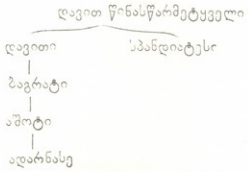 დავით წინასწარმეტყველი
დავითი სპანდიატესი
ბაგრატი
აშოტი
ადარნასე